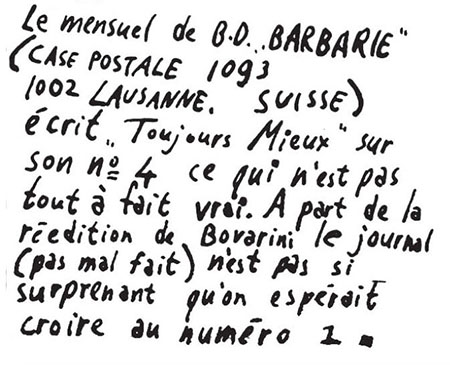 Le mensuel de B.D. „BARBARIE"
(CASE POSTALE 1093
1002 LAUSANNE. SUISSE)
écrit „Toujours Mieux" sur
son nº 4 ce qui n'est pas
tout à fait vrai. A part de la
réédition de Bovarini le journal
(pas mal fait) n'est pas si
surprenant qu'on espérait
croire au numéro 1.